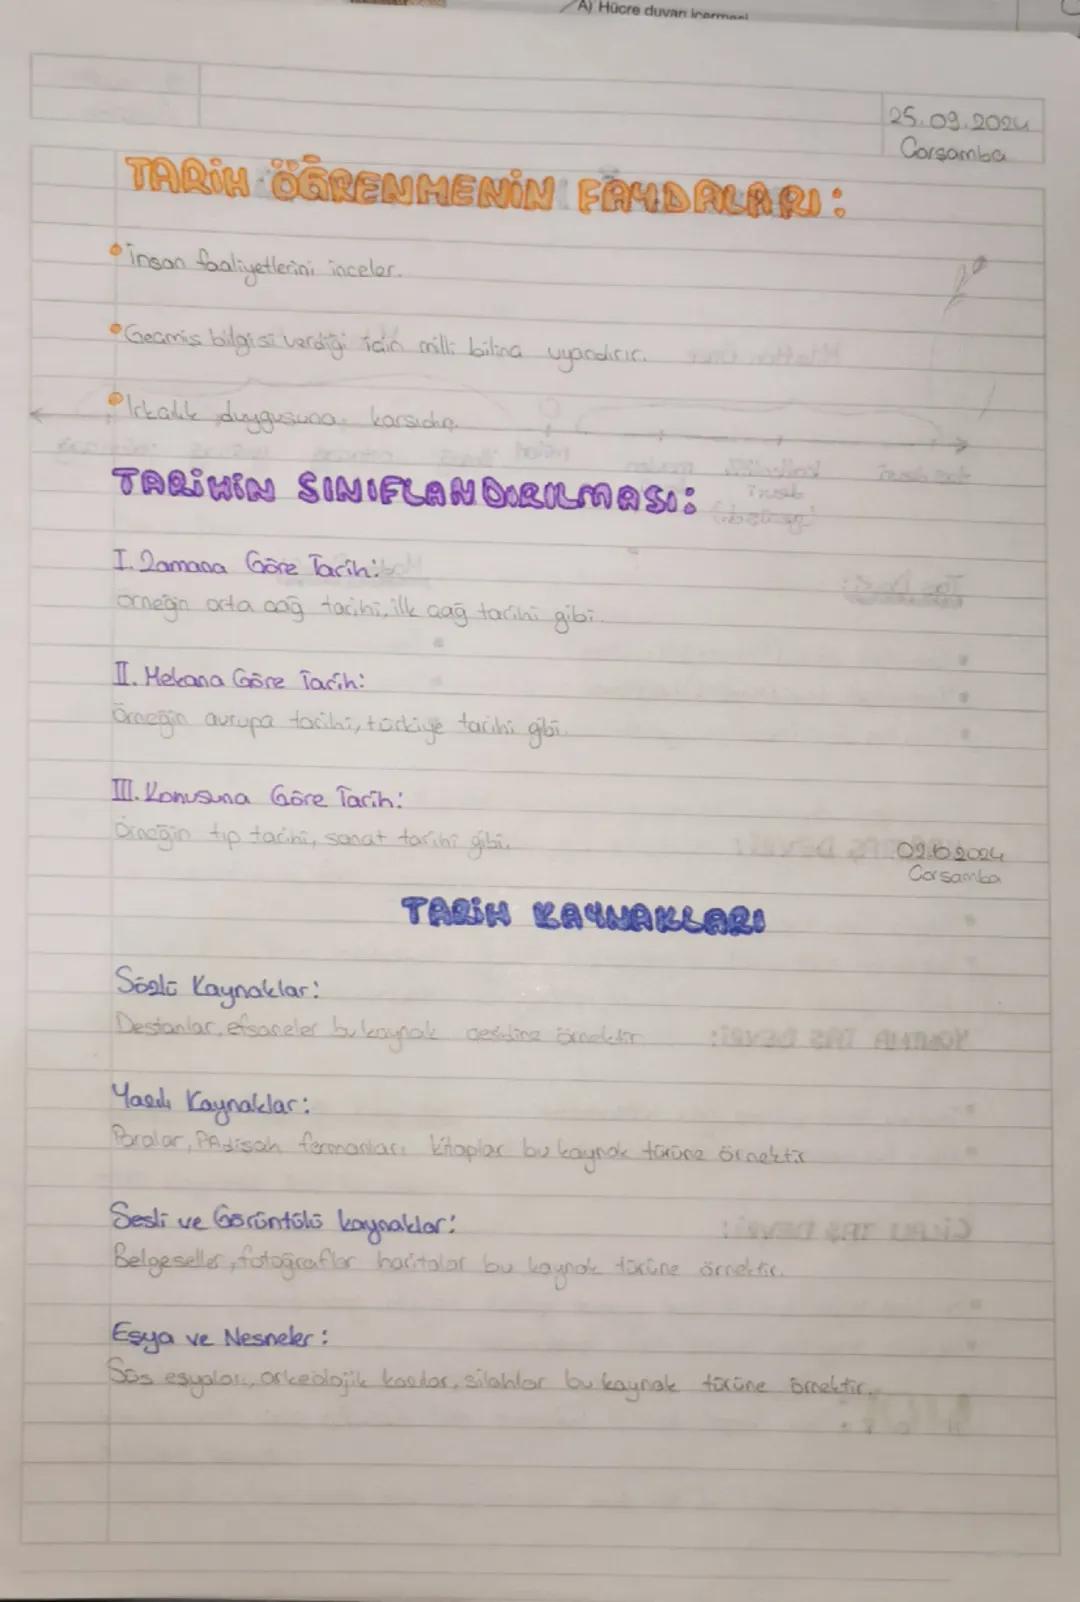 A) Hücre duvarı içermesi
25.09.2024
Çarşamba
TARİH ÖĞRENMENİN FAYDALARI:
• İnsan faaliyetlerini inceler.
• Geçmiş bilgisi verdiği için milli bilinç uyandırır.
• Irkçılık duygusuna karşıdır.
TARİHİN SINIFLANDIRILMASI:
I. Zamana Göre Tarih:
örneğin orta çağ tarihi, ilk çağ tarihi gibi.
II. Mekana Göre Tarih:
Örneğin avrupa tarihi, türkiye tarihi gibi.
III. Konusuna Göre Tarih:
Örneğin tıp tarihi, sanat tarihi gibi.
02.10.2024
Çarşamba
TARİH KAYNAKLARI
Sözlü Kaynaklar:
Destanlar, efsaneler bu kaynak çeşidine örnektir
Yazılı Kaynaklar:
Paralar, PAdişah fermanları kitaplar bu kaynak türüne örnektir
Sesli ve Görüntülü kaynaklar:
Belgeseller, fotoğraflar haritalar bu kaynak türüne örnektir.
Eşya ve Nesneler:
Süs eşyaları, arkeolojik kazılar, silahlar bu kaynak türüne örnektir.